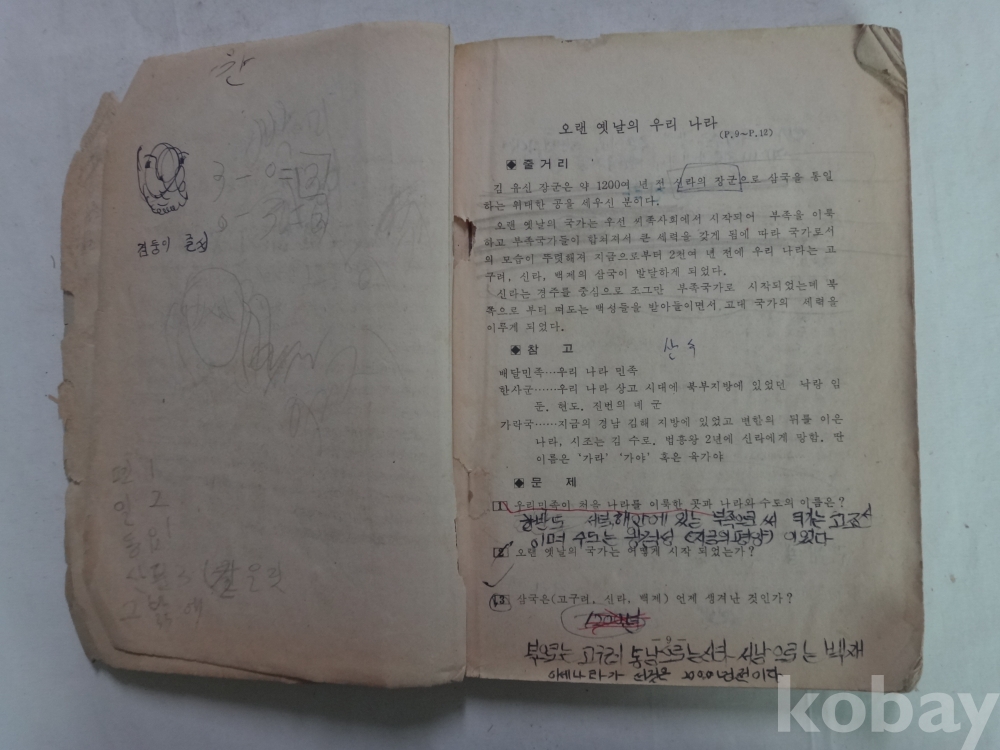 찬
3 - 0 = 3
검둥이 출성
오랜 옛날의 우리 나라
(P.9~P.12)
◈줄거리
김 유신 장군은 약 1200여 년 전 신라의 장군으로 삼국을 통일
하는 위대한 공을 세우신 분이다.
오랜 옛날의 국가는 우선 씨족사회에서 시작되어 부족을 이룩
하고 부족국가들이 합쳐져서 큰 세력을 갖게 됨에 따라 국가로서
의 모습이 뚜렷해져 지금으로부터 2천여 년 전에 우리 나라는 고
구려, 신라, 백제의 삼국이 발달하게 되었다.
신라는 경주를 중심으로 조그만 부족국가로 시작되었는데 북
쪽으로 부터 떠도는 백성들을 받아들이면서 고대 국가의 세력을
이루게 되었다.
◈참 고
산수
배달민족…우리 나라 민족
한사군……우리 나라 상고 시대에 북부지방에 있었던 낙랑 임
둔, 현도, 진번의 네 군
가락국……지금의 경남 김해 지방에 있었고 변한의 뒤를 이은
나라, 시조는 김 수로, 법흥왕 2년에 신라에게 망함, 딴
이름은 '가라' '가야' 혹은 육가야
◈문 제
1 우리민족이 처음 나라를 이룩한 곳과 나라와 수도의 이름은?
한반도 서북 해안에 있는 부족으로 써 국가는 고조선
이며 수도는 왕검성 (지금의 평양) 이었다
2 오랜 옛날의 국가는 어떻게 시작 되었는가?
3 삼국은(고구려, 신라, 백제) 언제 생겨난 것인가?
- 9 -
북으로는 고구려 동남으로는 신라 서남으로는 백재
이세나라가 된것은 2000년전이다
kobay